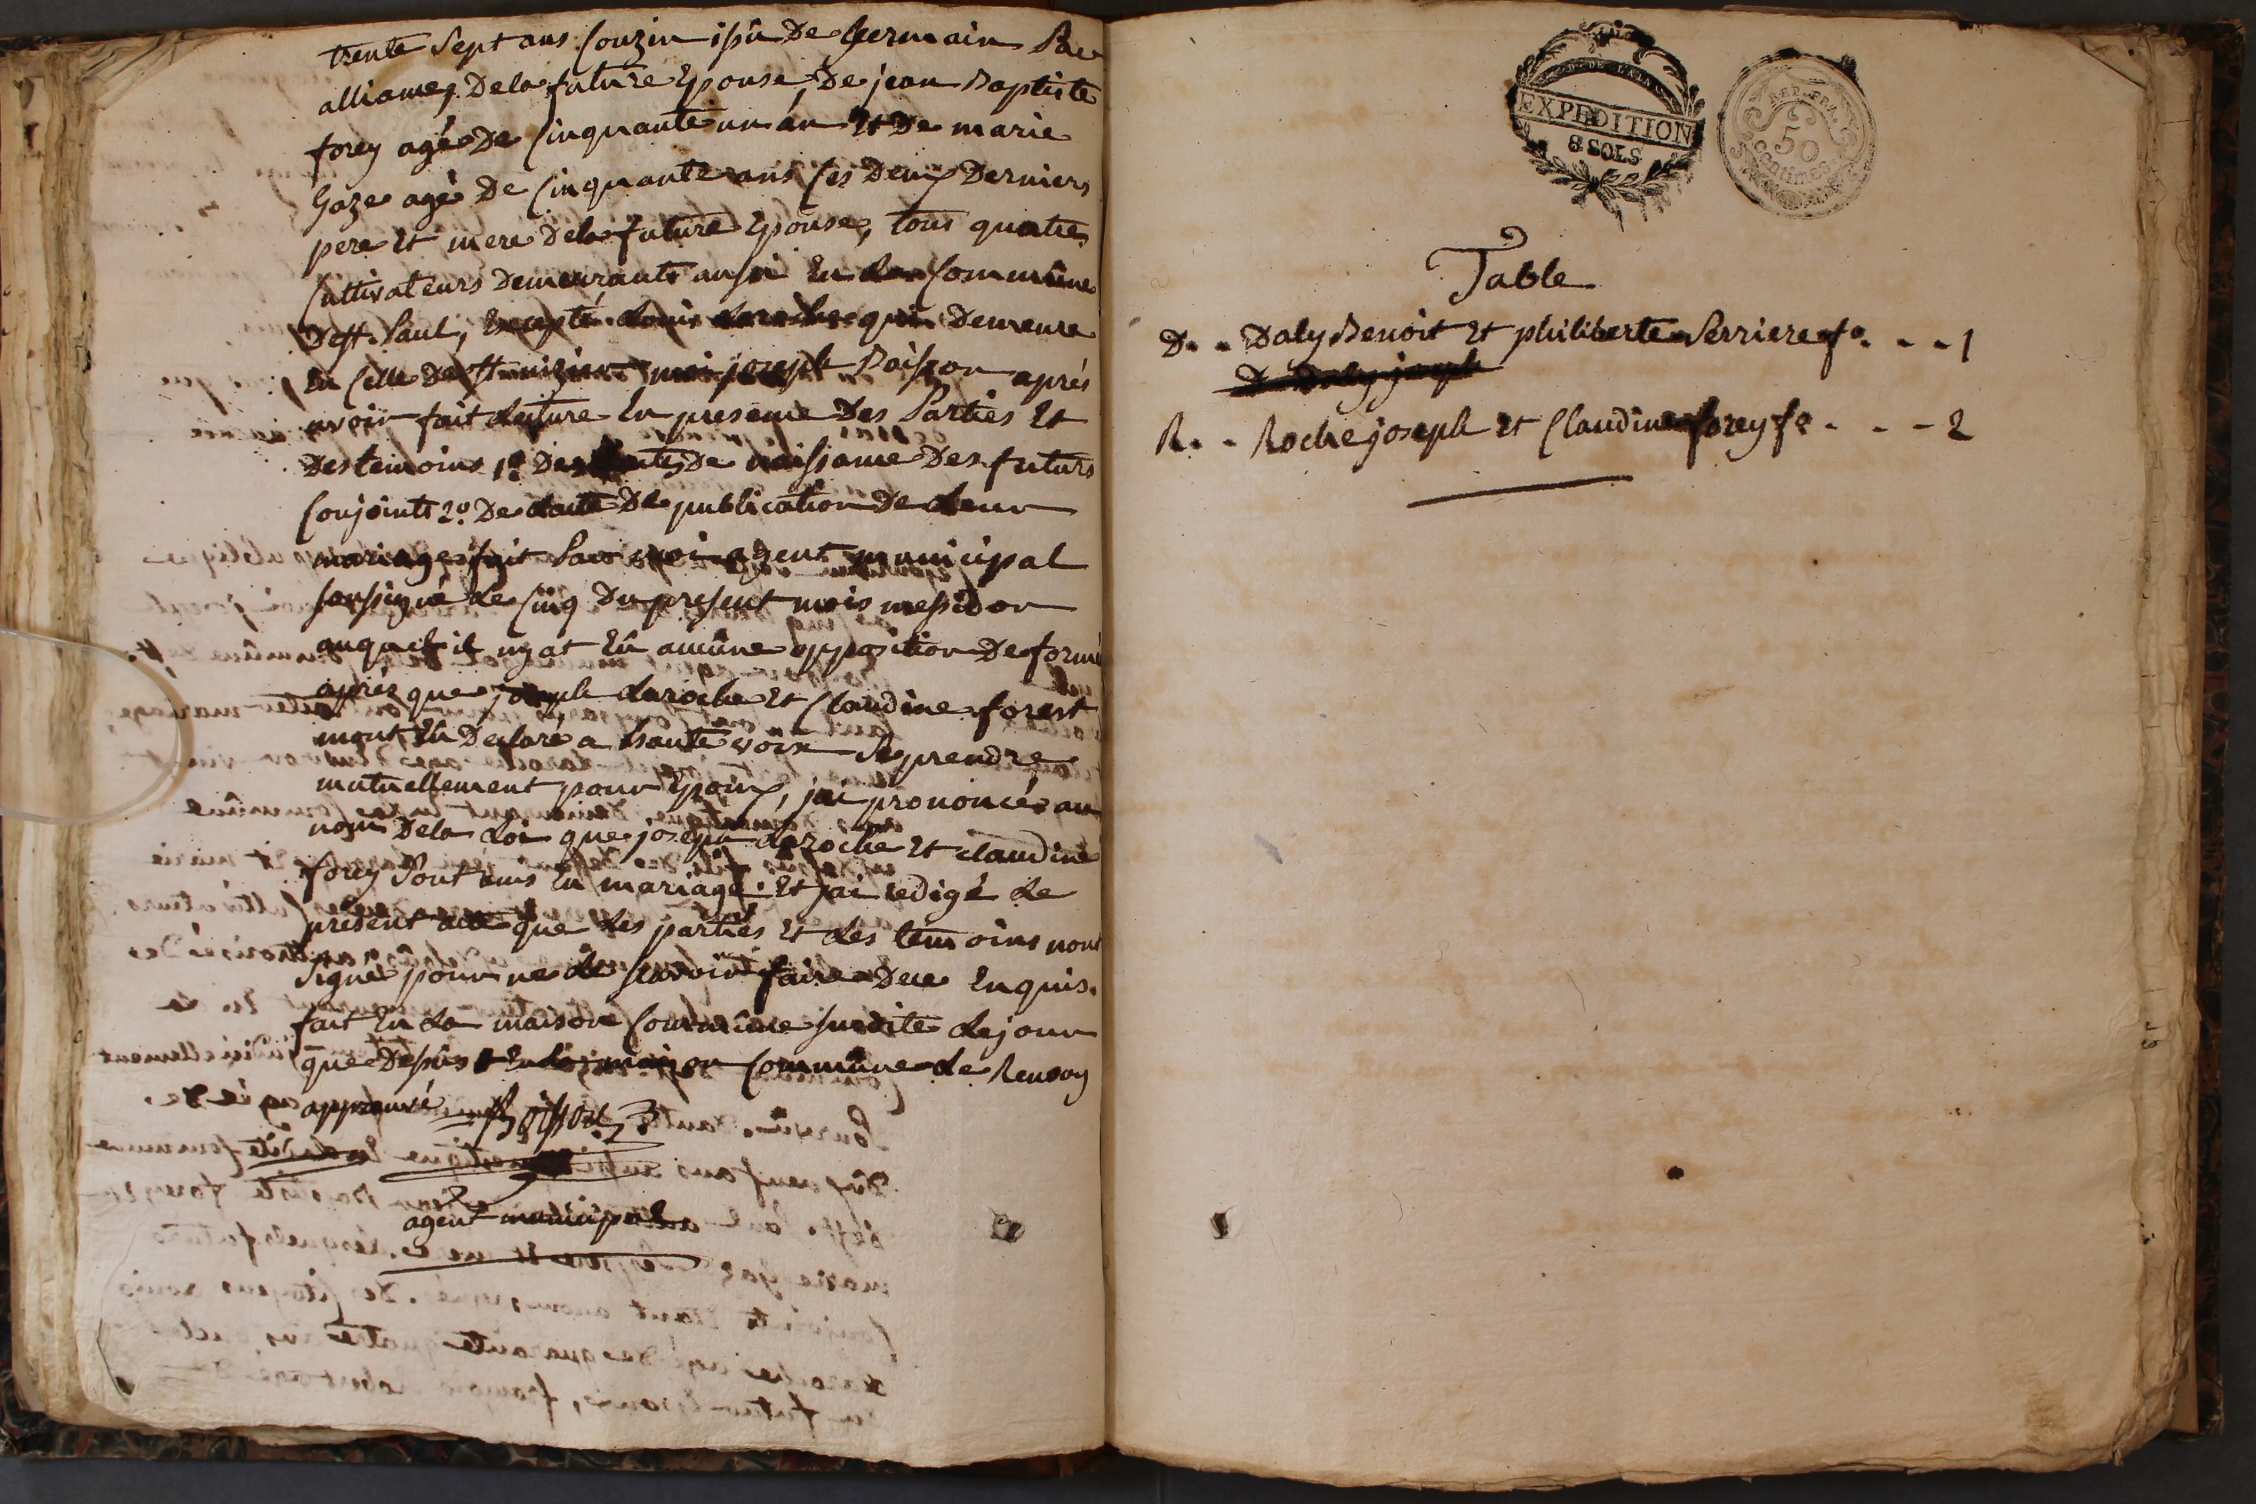 trente Sept ans Couzin issû De Germain Par
alliance, De la future Epouse, De jean Baptiste
forey agé De Cinquante un an Et De marie
Gaze agé De Cinquante ans Ces Deux Derniers
pere Et mere De la future Epouse, tous quatre
Cultivateurs Demeurants aussi En la Commune
De st. Paul, Excepté Louis Laroche qui Demeure
En Celle De st nizier moi joseph Boisson après
avoir fait lecture En presence Des Parties Et
Des temoins 1º Des actes De naissance Des futurs
Conjoints 2º De lacte De publication De leur
mariage fait Par moi agent municipal
soussigné le Cinq Du present mois messidor
auquel il nyat Eû aucune opposition De formé
aprés que joseph Laroche Et Claudine forest
mont Eû Declaré a haute voix Se prendre
mutuellement pour Epoux, jai prononcé au
nom De la Loi que joseph Laroche Et claudine
forey Sont unis En mariage. Et jai redigé Le
present acte que Les parties Et Les temoins nont
Signé pour ne Le scavoir faire De ce Enquis.
fait En La maison Commune Susdite Lejour
que Dessus En la maison Commune de Renson
approuvé Boisson
agent municipal
EXPEDITION
8 SOLS
REP. FRA.
50
centimes
Table
D. - Daly Benoit Et philiberte Perriere fo. - - - 1
D Daly joseph
R. - Roche joseph Et Claudine forey fo - - - 2